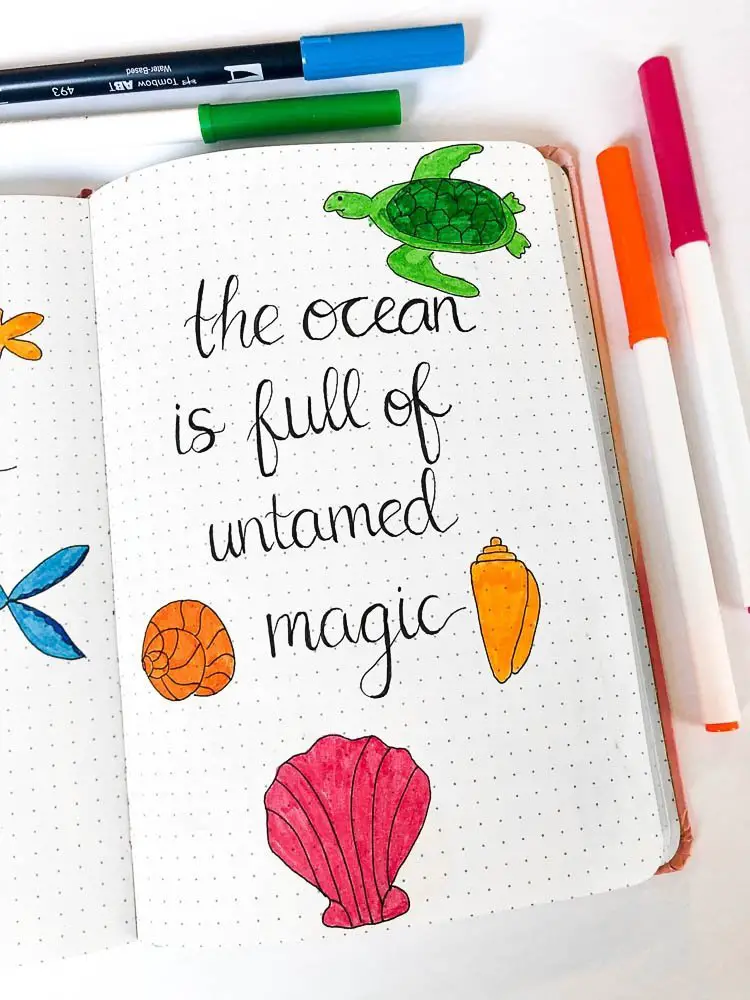 493 Tombow ABT
Water-Based
the ocean
is full of
untamed
magic